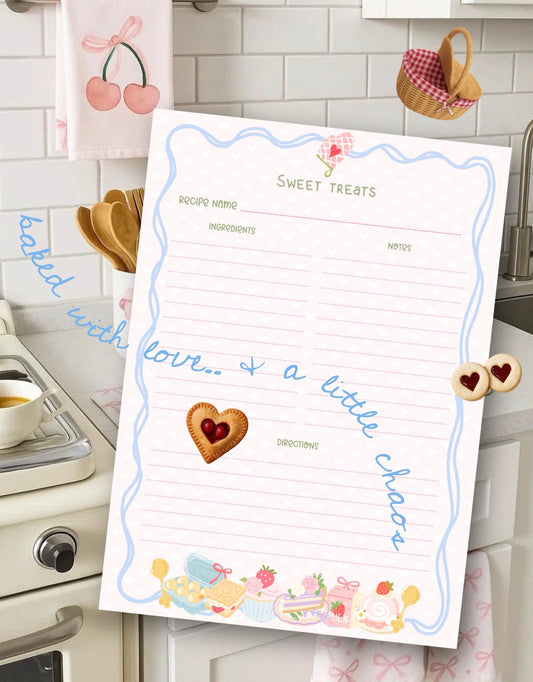 SWEET TREATS
RECIPE NAME
INGREDIENTS
NOTES
baked with love.. & a little chaos
DIRECTIONS